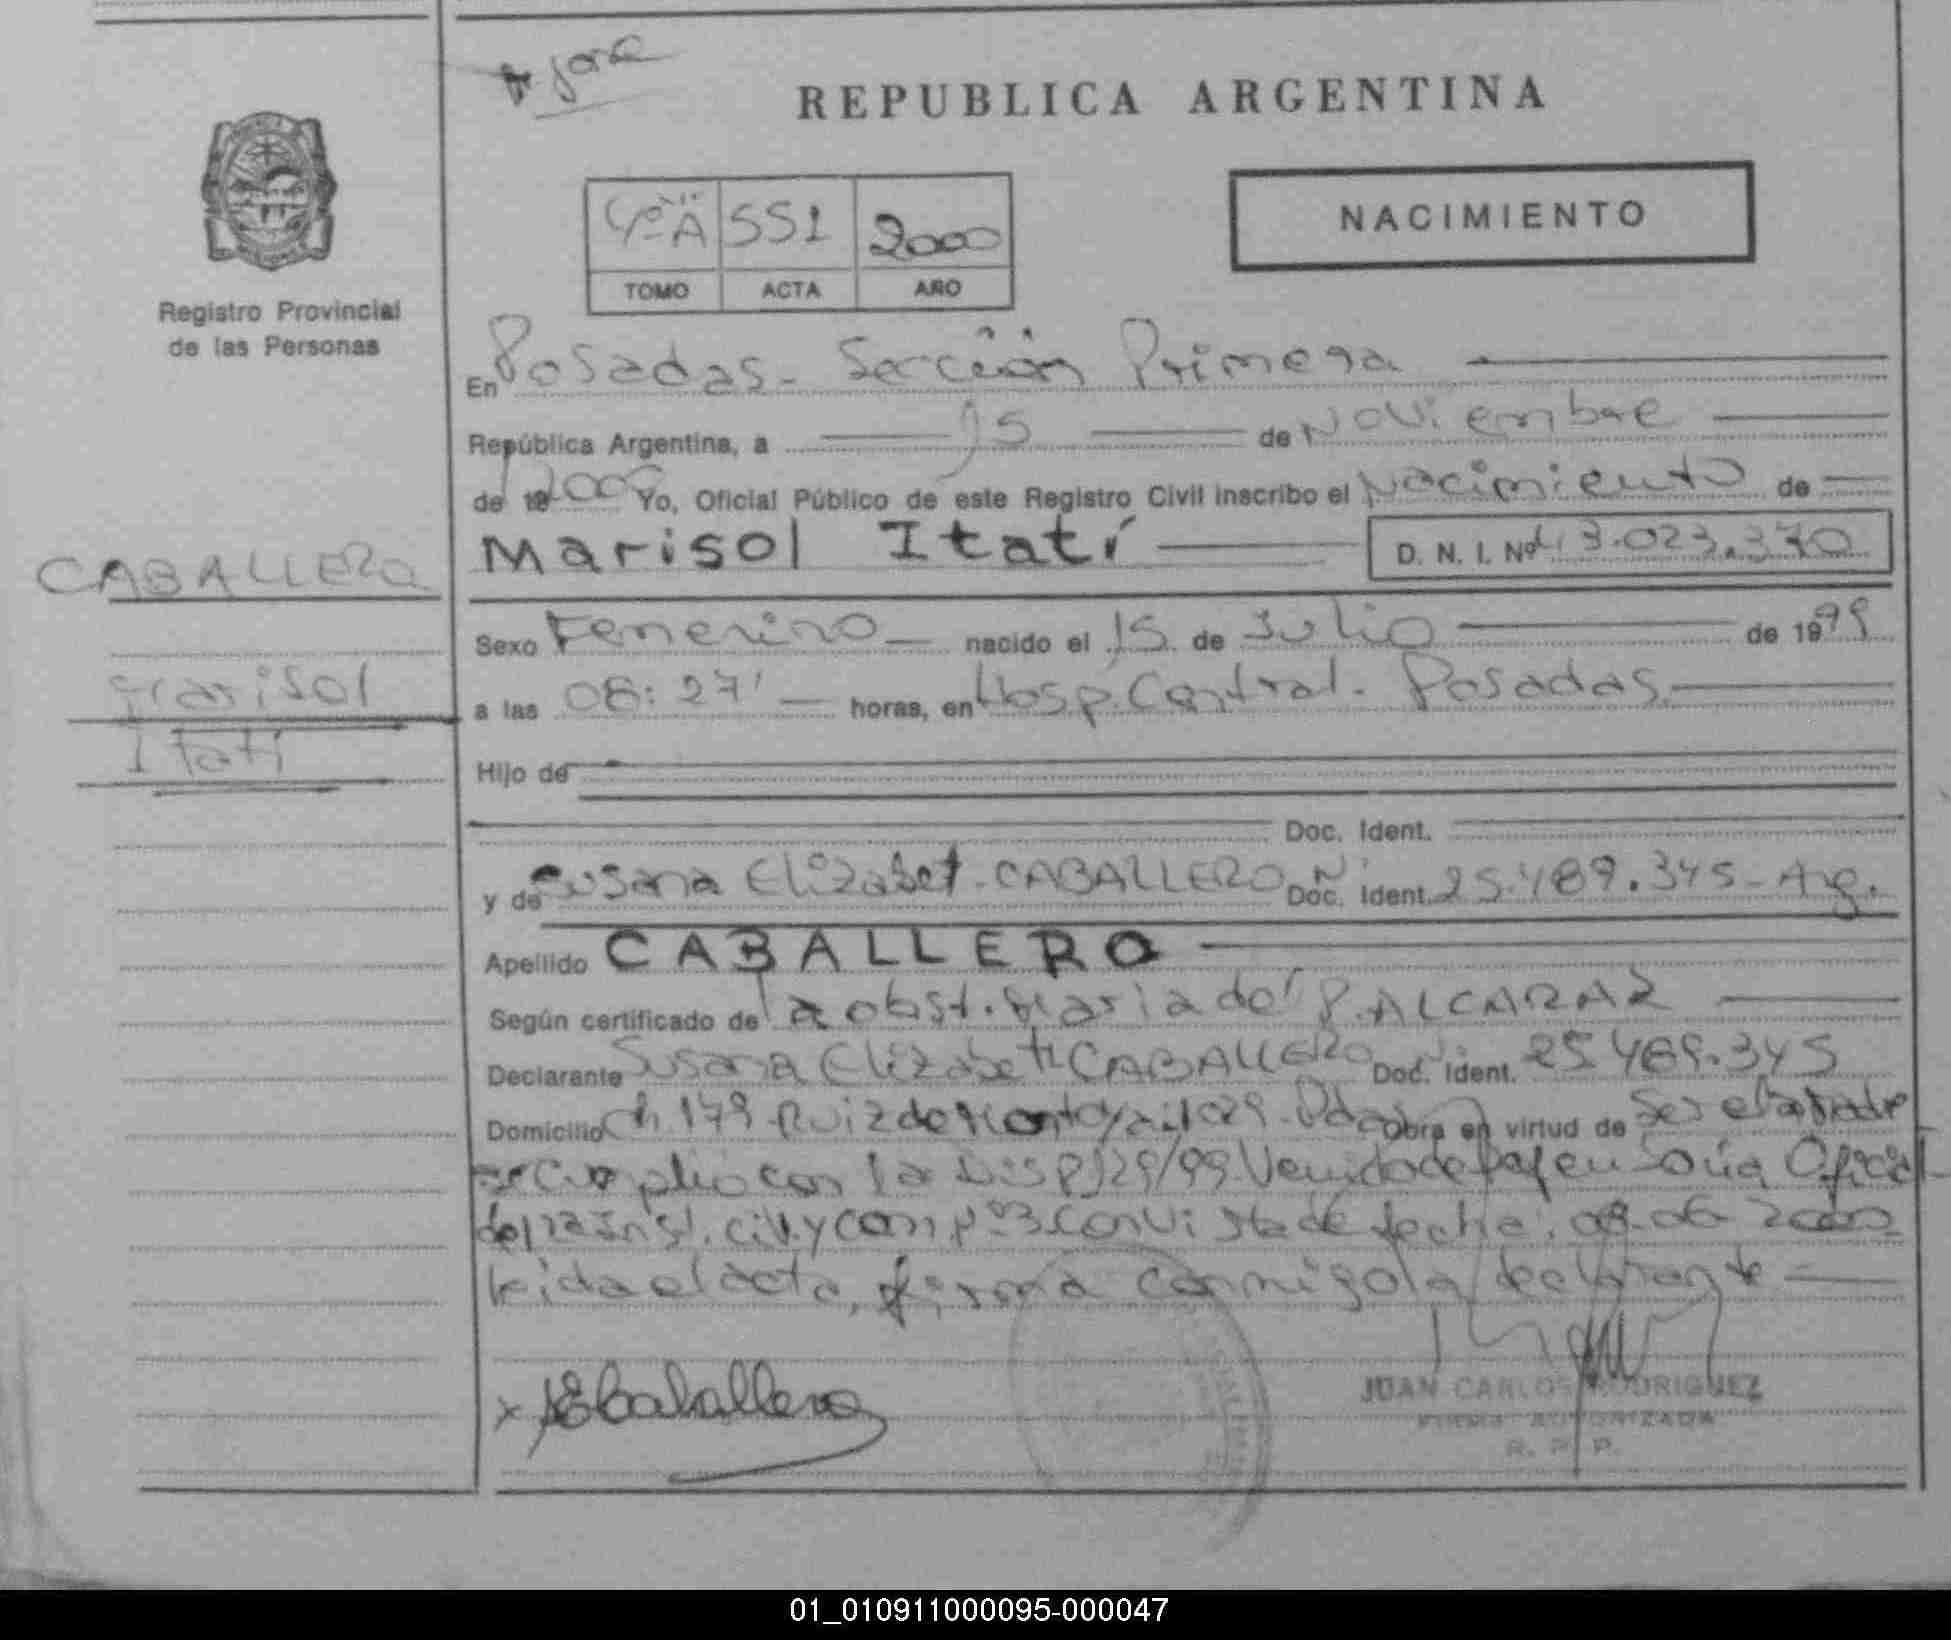 REPUBLICA ARGENTINA
4º A 551 2000
TOMO ACTA AÑO
NACIMIENTO
Registro Provincial
de las Personas
En Posadas - Sección Primera
República Argentina, a 15 de Noviembre
de 2000 Yo, Oficial Público de este Registro Civil inscribo el Nacimiento de
Marisol Itatí D. N. I. Nº 43.023.370
CABALLERO
Marisol
Itatí
Sexo Femenino nacido el 15 de Julio de 1999
a las 08:27' horas, en Hosp. Central. Posadas.
Hijo de
Doc. Ident.
y de Susana Elizabet - CABALLERO Doc. Ident. 25.489.345 - Arg.
Apellido CABALLERO
Según certificado de la obst. Maria del P. ALCARAZ
Declarante Susana Elizabeth CABALLERO Doc. Ident. 25.489.345
Domicilio Ch. 149 - Ruiz de Montoya 1029 - Pdas Obra en virtud de
se cumplio con la Disp 129/99
con vista de fecha: 08-06-2000
leida el acta, firma conmigo la declarante
x SECaballero
JUAN CARLOS RODRIGUEZ
FIRMA AUTORIZADA
R. P. P.
01_010911000095-000047